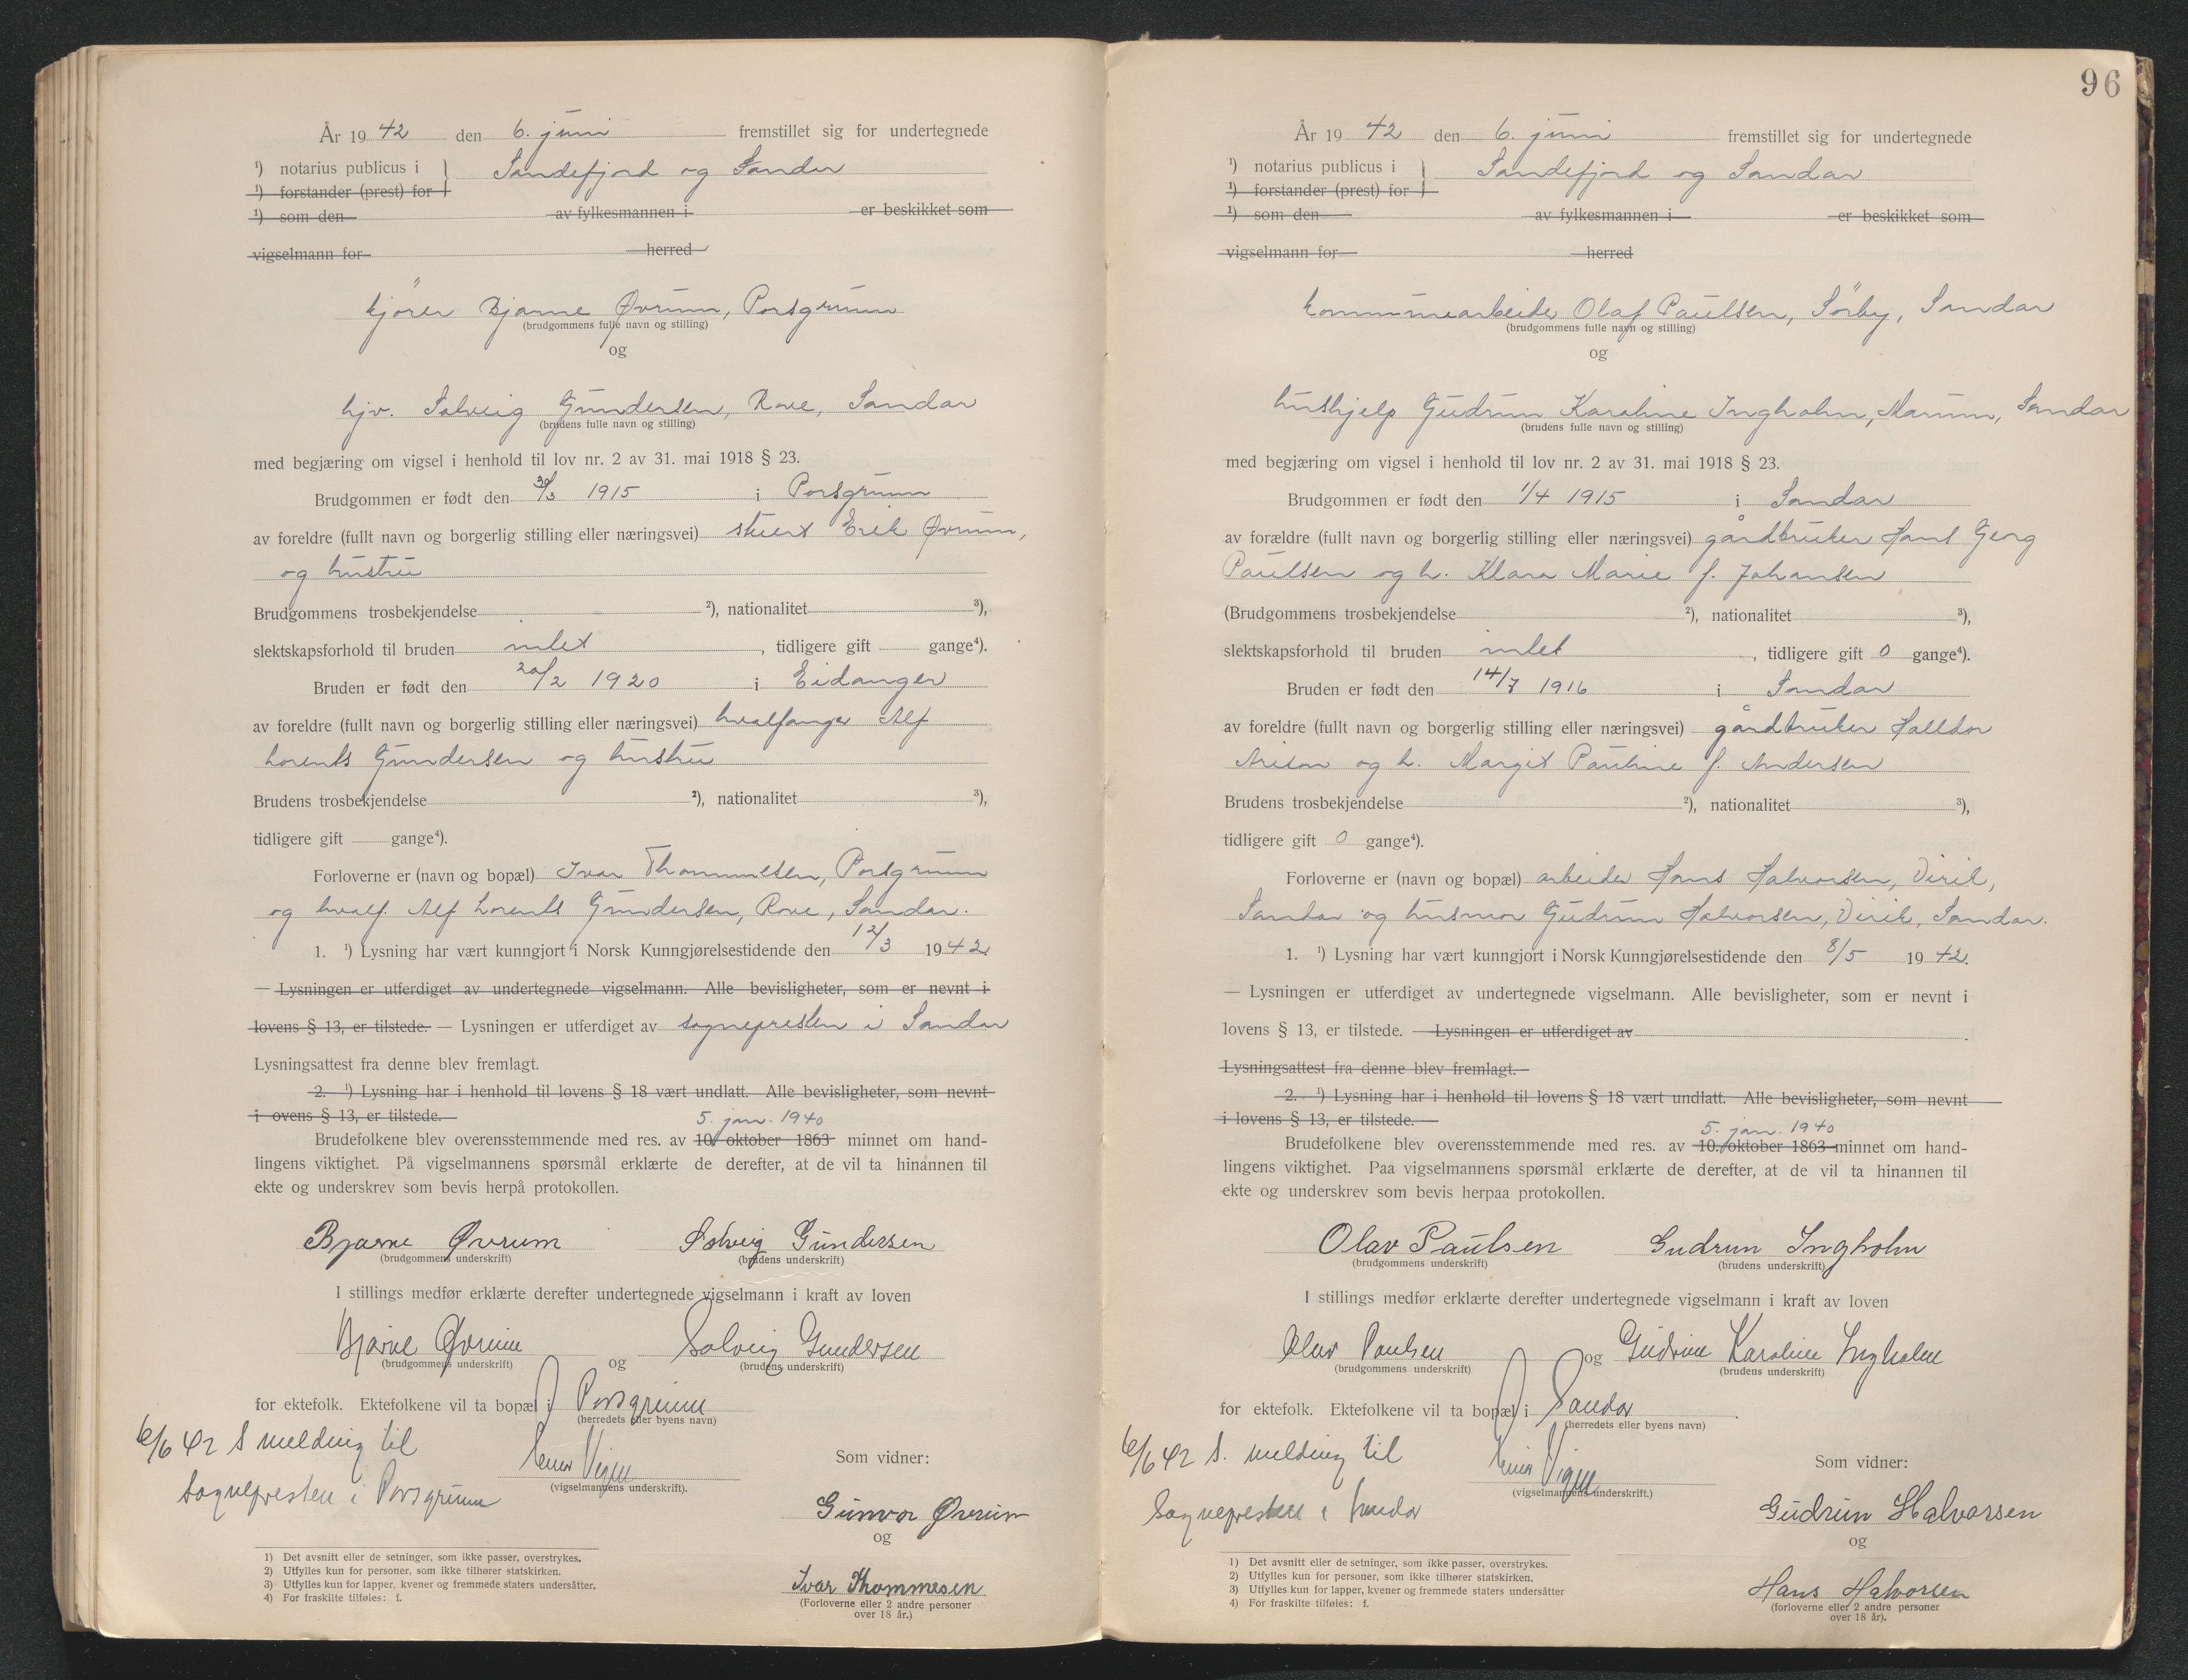 År 19 42 den 6. juni fremstillet sig for undertegnede
¹) notarius publicus i } Sandefjord og Sandar
¹) forstander (prest) for
¹) som den av fylkesmannen i er beskikket som
vigselmann for herred
kjörer Bjarne Øvrum, Porsgrunn
(brudgommens fulle navn og stilling)
og
hjv. Solveig Gundersen, Rove, Sandar
(brudens fulle navn og stilling)
med begjæring om vigsel i henhold til lov nr. 2 av 31. mai 1918 § 23.
Brudgommen er født den 30/3 1915 i Porsgrunn
av foreldre (fullt navn og borgerlig stilling eller næringsvei) stuert Erik Øvrum,
og hustru
Brudgommens trosbekjendelse ²), nationalitet ³),
slektskapsforhold til bruden intet , tidligere gift gange⁴).
Bruden er født den 20/2 1920 i Eidanger
av foreldre (fullt navn og borgerlig stilling eller næringsvei) hvalfanger Alf
Lorents Gundersen og hustru
Brudens trosbekjendelse ²), nationalitet ³),
tidligere gift gange⁴).
Forloverne er (navn og bopæl) Ivar Thommesen, Porsgrunn
og hvalf. Alf Lorents Gundersen, Rove, Sandar.
1. ¹) Lysning har vært kunngjort i Norsk Kunngjørelsestidende den 12/3 1942
— Lysningen er utferdiget av undertegnede vigselmann. Alle bevisligheter, som er nevnt i
lovens § 13, er tilstede. — Lysningen er utferdiget av sognepresten i Sandar
Lysningsattest fra denne blev fremlagt.
2. ¹) Lysning har i henhold til lovens § 18 vært undlatt. Alle bevisligheter, som nevnt
i ovens § 13, er tilstede.
5. jan. 1940
Brudefolkene blev overensstemmende med res. av 10. oktober 1863 minnet om hand-
lingens viktighet. På vigselmannens spørsmål erklærte de derefter, at de vil ta hinannen til
ekte og underskrev som bevis herpå protokollen.
Bjarne Øvrum Solveig Gundersen
(brudgommens underskrift) (brudens underskrift)
I stillings medfør erklærte derefter undertegnede vigselmann i kraft av loven
Bjarne Øvrum og Solveig Gundersen
(brudgommens underskrift) (brudens underskrift)
for ektefolk. Ektefolkene vil ta bopæl i Porsgrunn
(herredets eller byens navn)
6/6 42 S melding til
sognepresten i Porsgrunn
(vigselmannens underskrift).
Som vidner:
Gunvor Øvrum
og
Ivar Thommesen
(Forloverne eller 2 andre personer
over 18 år.)
1) Det avsnitt eller de setninger, som ikke passer, overstrykes.
2) Utfylles kun for personer, som ikke tilhører statskirken.
3) Utfylles kun for lapper, kvener og fremmede staters undersåtter.
4) For fraskilte tilføies: f.
96
År 19 42 den 6. juni fremstillet sig for undertegnede
¹) notarius publicus i } Sandefjord og Sandar
¹) forstander (prest) for
¹) som den av fylkesmannen i er beskikket som
vigselmann for herred
kommunearbeider Olaf Paulsen, Sörby, Sandar
(brudgommens fulle navn og stilling)
og
hushjelp Gudrun Karoline Ingholm, Marum, Sandar
(brudens fulle navn og stilling)
med begjæring om vigsel i henhold til lov nr. 2 av 31. mai 1918 § 23.
Brudgommen er født den 1/4 1915 i Sandar
av forældre (fullt navn og borgerlig stilling eller næringsvei) gårdbruker Hans Georg
Paulsen og h. Klara Marie f. Johansen
(Brudgommens trosbekjendelse ²), nationalitet ³),
slektskapsforhold til bruden intet , tidligere gift 0 gange⁴).
Bruden er født den 14/7 1916 i Sandar
av foreldre (fullt navn og borgerlig stilling eller næringsvei) gårdbruker Halldor
og h. Margit Pauline f. Andersen
Brudens trosbekjendelse ²), nationalitet ³),
tidligere gift 0 gange⁴).
Forloverne er (navn og bopæl) arbeider Hans Halvorsen, Virik,
Sandar og husmor Gudrun Halvorsen, Virik, Sandar.
1. ¹) Lysning har vært kunngjort i Norsk Kunngjørelsestidende den 8/5 19 42.
— Lysningen er utferdiget av undertegnede vigselmann. Alle bevisligheter, som er nevnt i
lovens § 13, er tilstede. — Lysningen er utferdiget av
Lysningsattest fra denne blev fremlagt.
2. ¹) Lysning har i henhold til lovens § 18 vært undlatt. Alle bevisligheter, som nevnt
i lovens § 13, er tilstede.
5. jan. 1940
Brudefolkene blev overensstemmende med res. av 10. oktober 1863 minnet om hand-
lingens viktighet. Paa vigselmannens spørsmål erklærte de derefter, at de vil ta hinannen til
ekte og underskrev som bevis herpaa protokollen.
Olav Paulsen Gudrun Ingholm
(brudgommens underskrift) (brudens underskrift)
I stillings medfør erklærte derefter undertegnede vigselmann i kraft av loven
Olav Paulsen og Gudrun Karoline Ingholm
(brudgommens underskrift) (brudens underskrift)
for ektefolk. Ektefolkene vil ta bopæl i Sandar
(herredets eller byens navn)
6/6 42 S. melding til
Sognepresten i Sandar
(vigselmannens underskrift.)
Som vidner:
Gudrun Halvorsen
og
Hans Halvorsen
(forloverne eller 2 andre personer
over 18 år).
1) Det avsnitt eller de setninger, som ikke passer, overstrykes.
2) Utfylles kun for personer, som ikke tilhører statskirken.
3) Utfylles kun for lapper, kvener og fremmede staters undersåtter
4) For fraskilte tilføies: f.